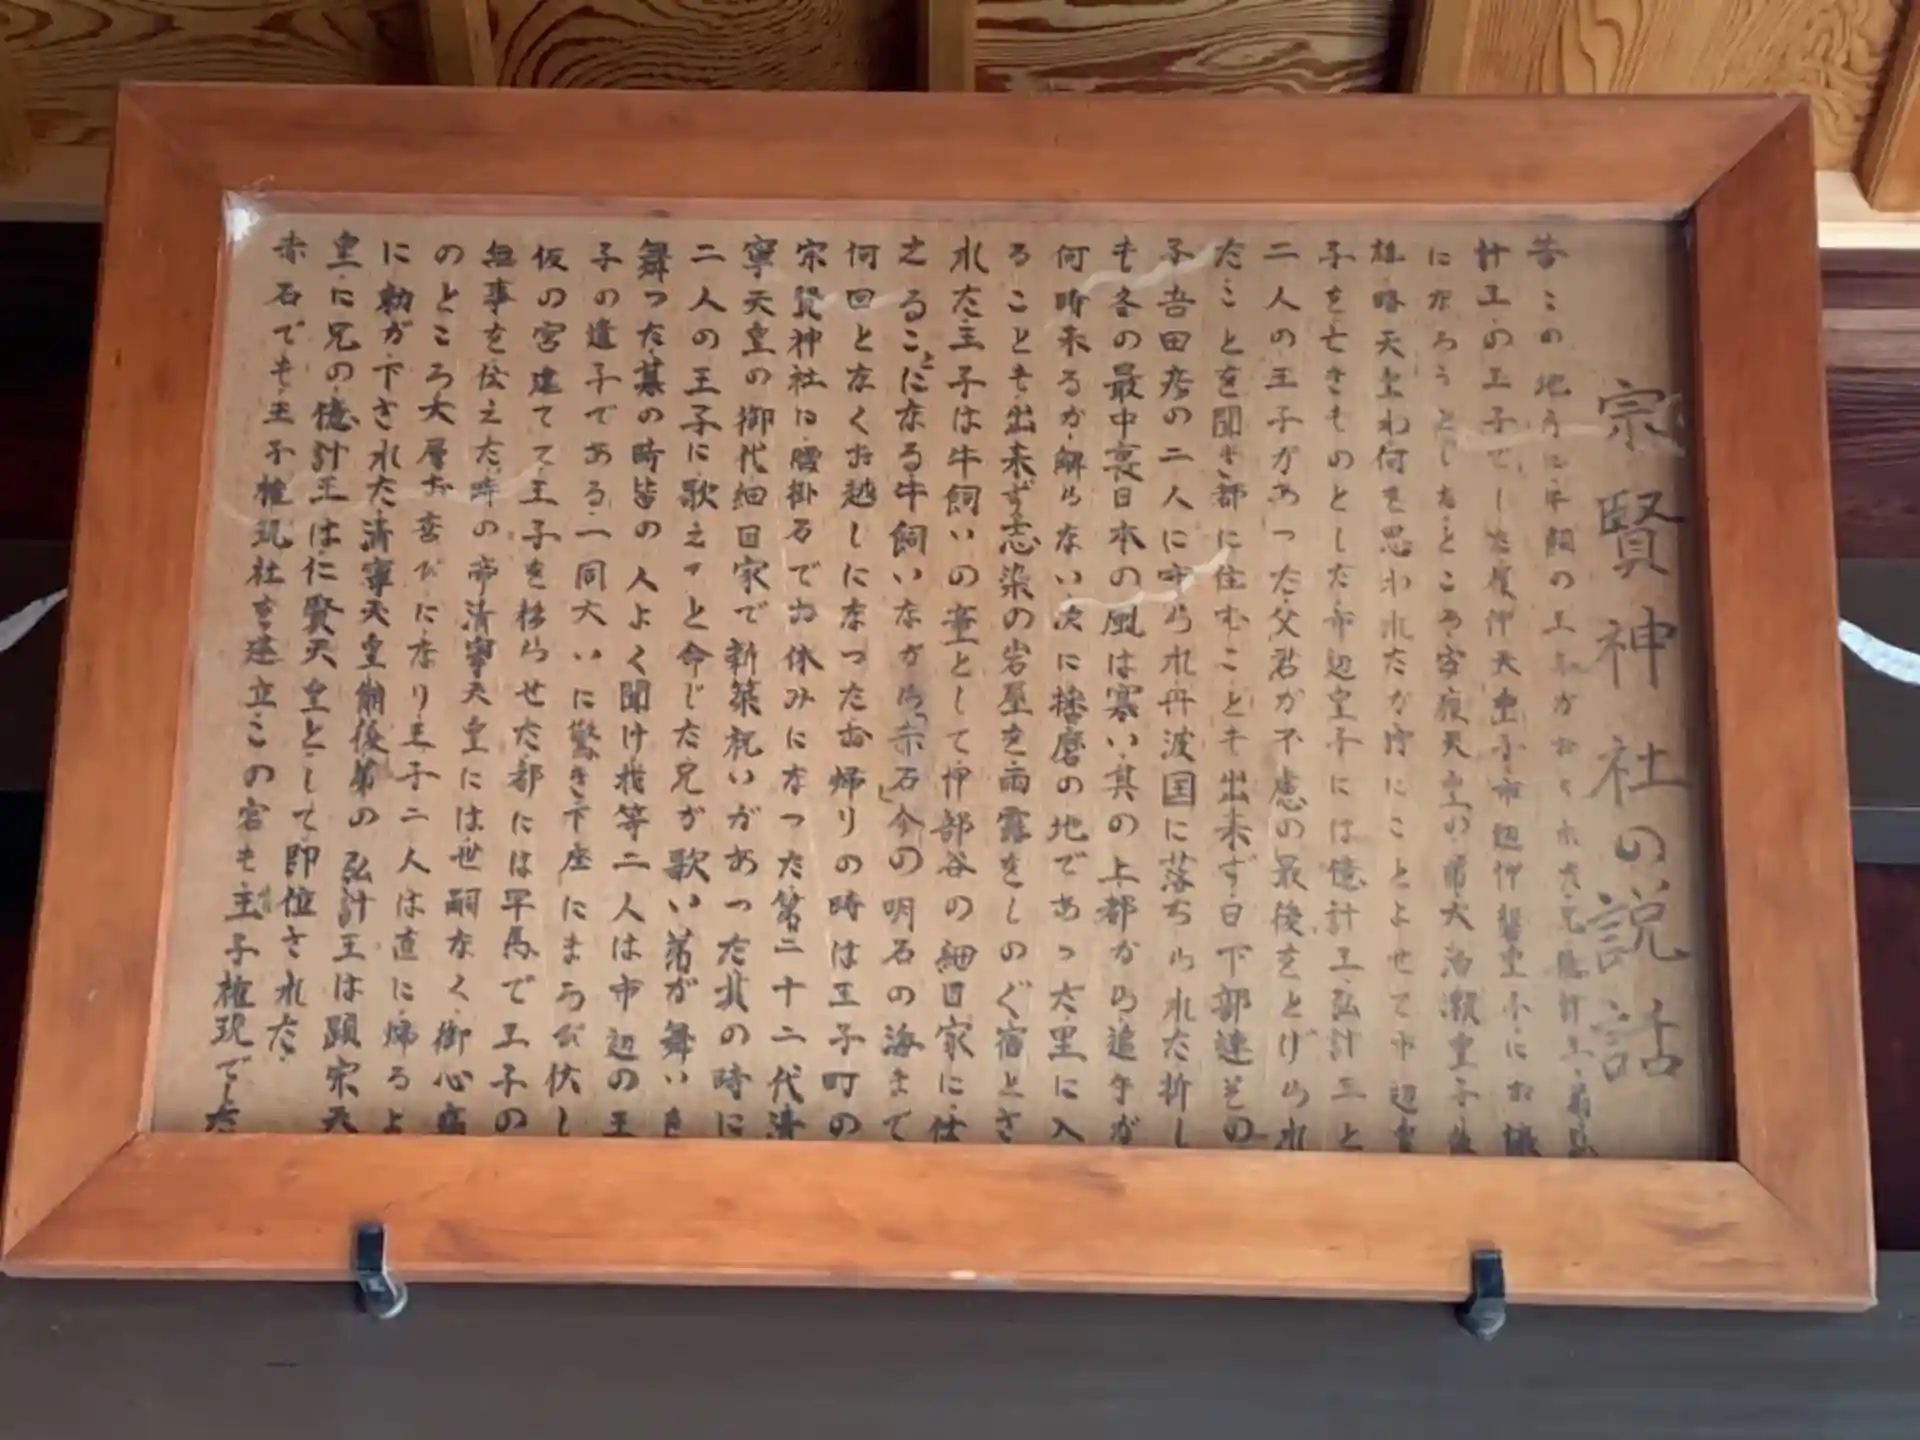 宗賢神社の説話
昔この地方に牛飼の王子がおられた兄億計王・弟弘
計王の王子でした履仲天皇子市辺押磐皇子にお譲
になろうとしたところ安康天皇の弟大泊瀬皇子後
雄略天皇わ何を思われたか狩にことよせて市辺皇
子を亡きものとした市辺皇子には億計王弘計王と
二人の王子があった父君が不慮の最後をとげられ
たことを聞き都に住むことも出来ず日下部連その
子吾田彦の二人に守られ丹波国に落ちられた折し
も冬の最中裏日本の風は寒い其の上都から追手が
何時来るか解らない次に播磨の地であった里に入
ることも出来ず志染の岩屋を雨露をしのぐ宿とさ
れた王子は牛飼いの童として押部谷の細目家に仕
之ることになる牛飼いながら赤石今の明石の海まで
何回となくお越しになったお帰りの時は王子町の
宗賢神社は腰掛石でお休みになった第二十二代清
寧天皇の御代細目家で新築祝いがあった其の時に
二人の王子に歌えヤと命じた兄が歌い弟が舞いを
舞った其の時皆の人よく聞け我等二人は市辺の王
子の遺子である一同大いに驚き下座にまろび伏し
仮の宮建てて王子を移らせた都には早馬で王子の
無事を伝えた時の帝清寧天皇には世嗣なく御心痛
のところ大層お喜びになり王子二人は直に帰るよ
に勅が下された清寧天皇崩後弟の弘計王は顕宗天
皇に兄の億計王は仁賢天皇として即位された
赤石でも王子権現社を建立この宮も王子権現でした